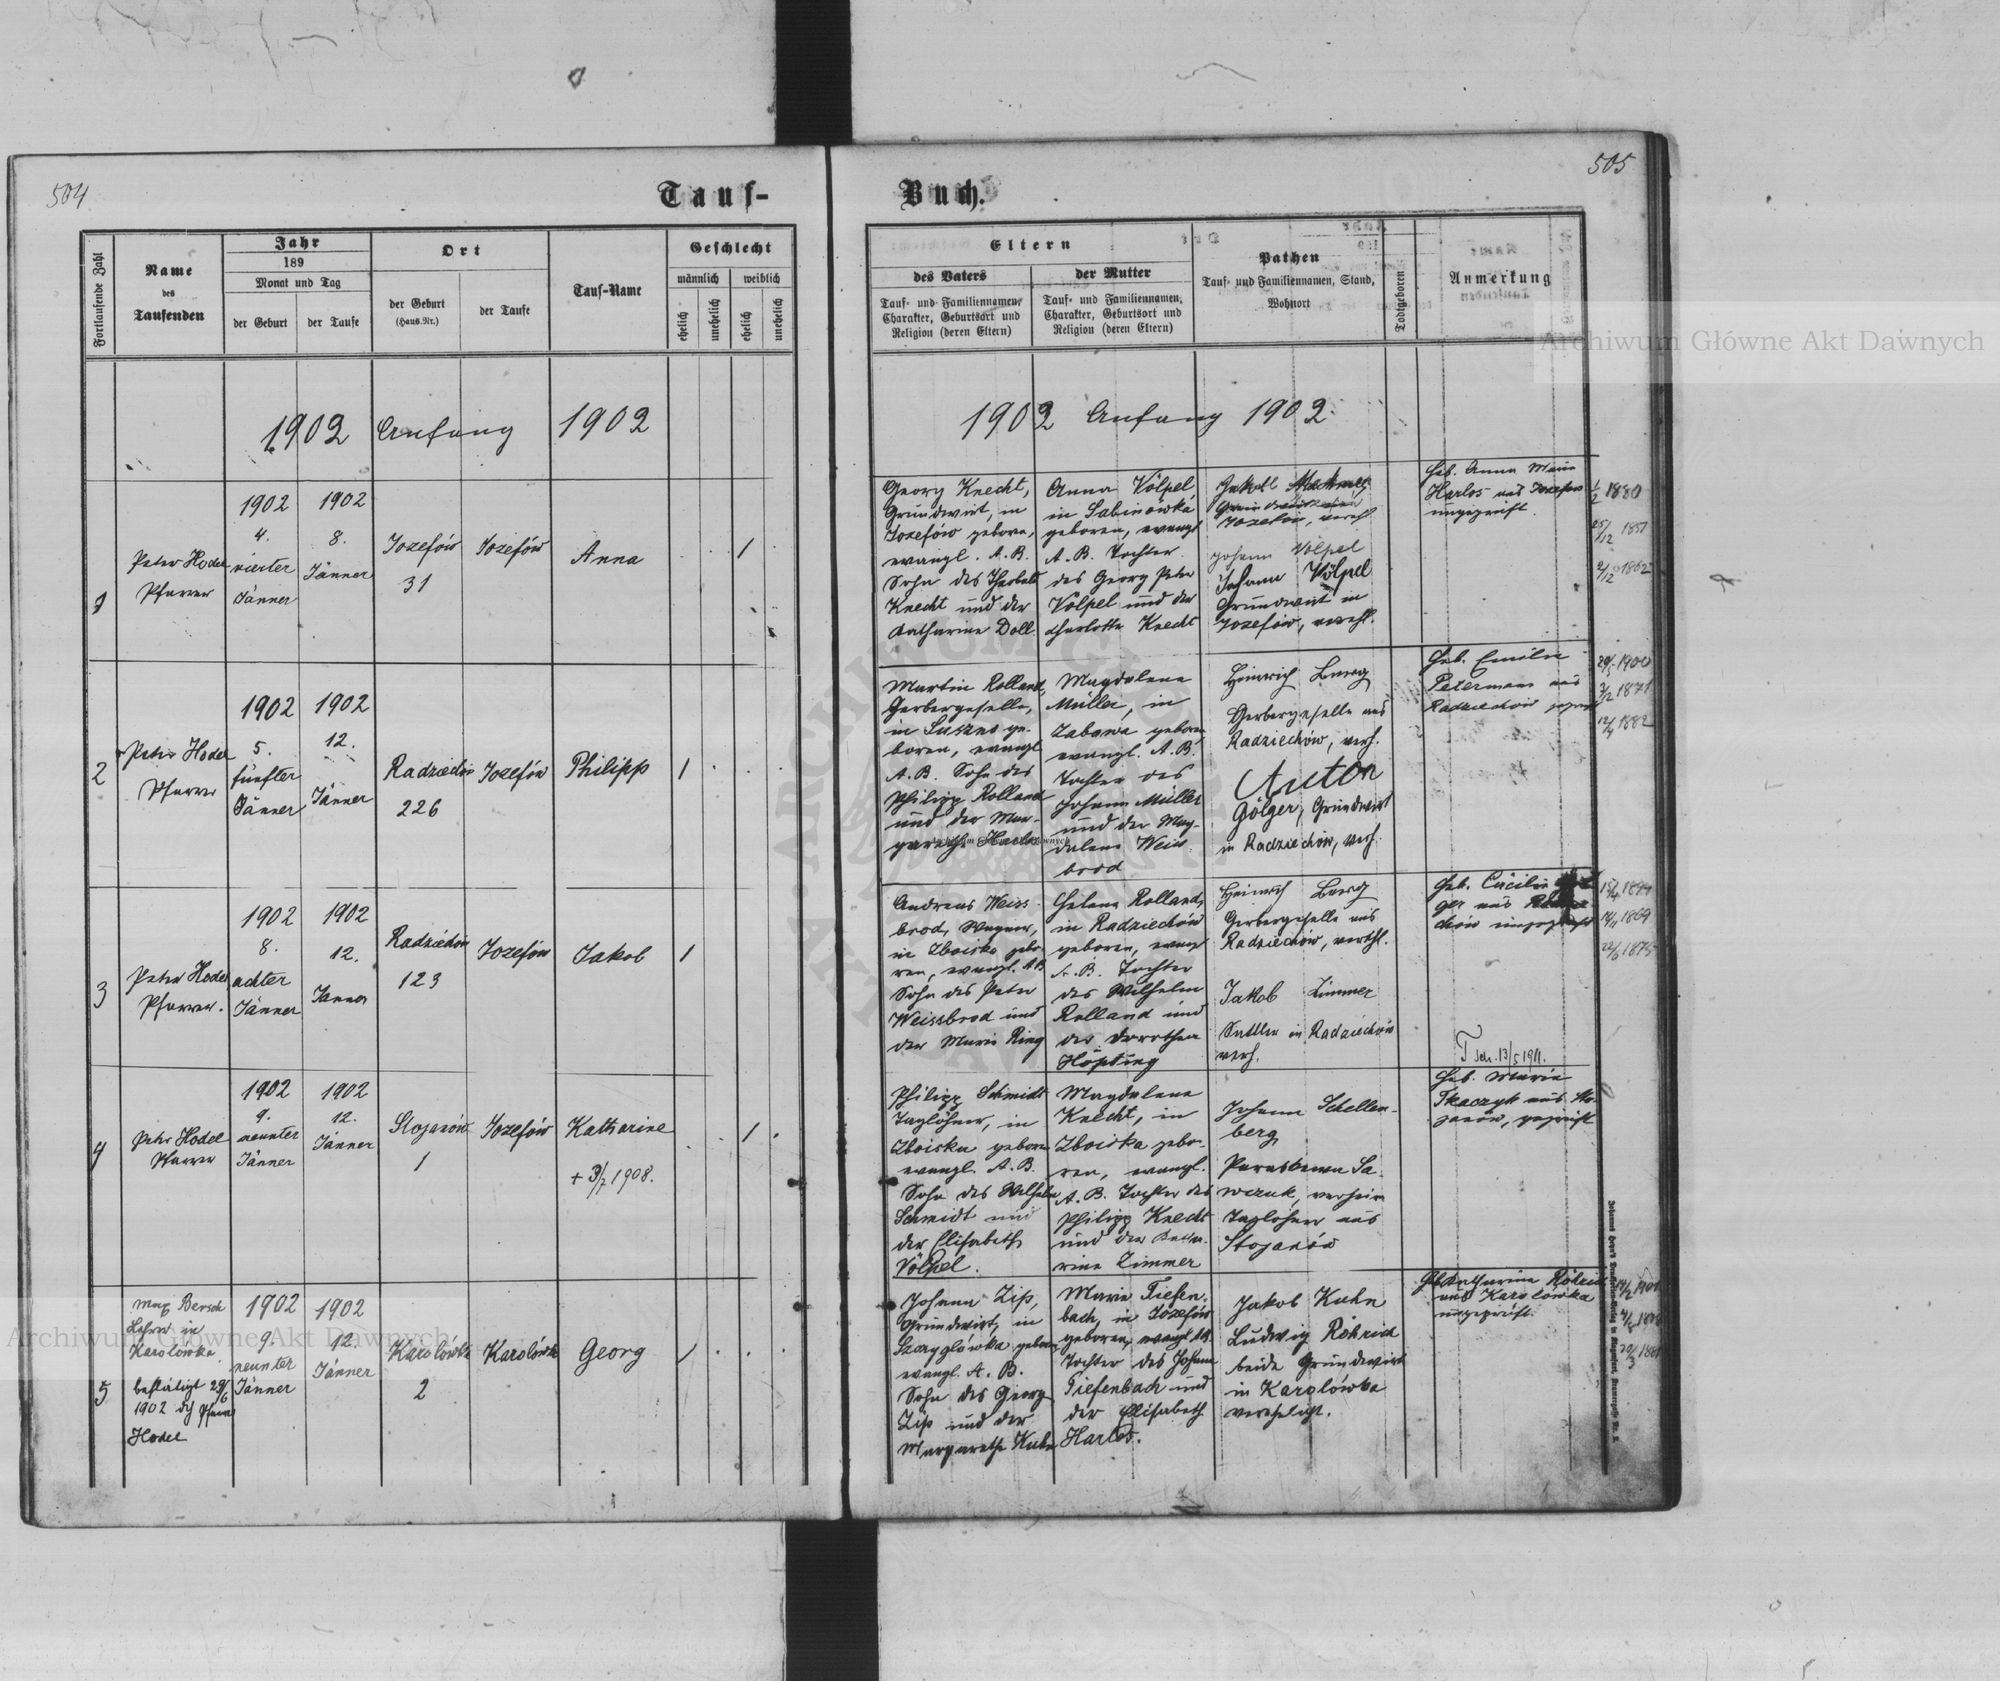 504
505
Tauf-
Buch.
Fortlaufende Zahl
Name
des
Taufenden
Jahr
189
Monat und Tag
der Geburt
der Taufe
Ort
der Geburt
(Haus-Nr.)
der Taufe
Tauf-Name
Geschlecht
männlich
weiblich
ehelich
unehelich
ehelich
unehelich
Eltern
des Vaters
Tauf- und Familiennamen,
Charakter, Geburtsort und
Religion (deren Eltern)
der Mutter
Tauf- und Familiennamen,
Charakter, Geburtsort und
Religion (deren Eltern)
Pathen
Tauf- und Familiennamen, Stand,
Wohnort
Todtgeboren
Anmerkung
Archiwum Główne Akt Dawnych
1902 Anfang 1902
1902 Anfang 1902
1
Peter Hodel
Pfarrer
1902
4.
vierter
Jänner
1902
8.
Jänner
Jozefów
31
Jozefów
Anna
1
Georg Knecht,
Grundwirt, in
Jozefów geboren,
evangl. A. B.
Sohn des
Knecht und der
Katharine Doll.
Anna Völpel
in Sabinówka
geboren, evangl
A. B. Tochter
des Georg Peter
Völpel und der
Charlotte Knecht
Jakob
Jozefów, verehl
Johann Völpel
Johann Völpel
Grundwirt in
Jozefów, verehl.
Heb. Anna Maria
Harlos aus Jozefow
ungeprüft.
1/2 1880
25/12 1857
2/12 1862
2
Peter Hodel
Pfarrer
1902
5.
fünfter
Jänner
1902
12.
Jänner
Radziechów
226
Jozefów
Philipp
1
Martin Rolland,
Gerbergeselle,
in Suszno ge-
boren, evangl
A. B. Sohn des
Philipp Rolland
und der Mar-
gareth Harlos
Magdalena
Müller, in
Zabawa geboren
evangl. A. B.
Tochter des
Johann Müller
und der Mag-
dalena Weiss
brod
Heinrich Burg
Gerbergeselle aus
Radziechów, verh.
Anton
Gölger, Grundwirt
in Radziechów, verh.
Heb. Emilie
Petermann aus
Radziechów
1900
1871
1882
3
Peter Hodel
Pfarrer.
1902
8.
achter
Jänner
1902
12.
Jänner
Radziechów
123
Jozefów
Jakob
1
Andreas Weiss-
brod, Wagner,
in Zboiska gebo-
ren, evangl. AB
Sohn des Peter
Weissbrod und
der Maria Ring
Helena Rolland,
in Radziechów
geboren, evangl
A. B. Tochter
des Wilhelm
Rolland und
der Dorothea
Höpting
Heinrich Burg
Gerbergeselle aus
Radziechów, verehl.
Jakob Zimmer
Sattler in Radziechów
verh.
Heb. Cäcilie
ger aus
chów ungeprüft
1869
1875
T sch. 13/5 1911.
4
Peter Hodel
Pfarrer
1902
9.
neunter
Jänner
1902
12.
Jänner
Stojanów
1
Jozefów
Katharine
+ 3/7 1908.
1
Philipp Schmidt
Taglöhner, in
Zboiska geboren
evangl. A. B.
Sohn des Wilhelm
Schmidt und
der Elisabeth
Völpel.
Magdalena
Knecht, in
Zboiska gebo-
ren, evangl.
A. B. Tochter des
Philipp Knecht
und der Katha-
rine Zimmer
Johann Schellen-
berg
Paraskewa Sa-
wczuk, verheir
Taglöhner aus
Stojanów
Heb. Maria
Tkaczyk aus Sto-
janów, geprüft
5
Max Bersch
Lehrer in
Karolówka
bestätigt 29/6
1902 dch Pfarrer
Hodel
1902
9.
neunter
Jänner
1902
12.
Jänner
Karolówka
2
Karolówka
Georg
1
Johann Zip,
Grundwirt, in
geboren
evangl. A. B.
Sohn des Georg
Zip und der
Margarethe Kuhn
Marie Tiefen-
bach, in Jozefów
geboren, evangl AB.
Tochter des Johann
Tiefenbach und
der Elisabeth
Harlos.
Jakob Kuhn
Ludwig Röhrich
beide Grundwirt
in Karolówka
verehelicht.
Heb Katharina Röhrich
aus Karolówka
ungeprüft
Archiwum Główne Akt Dawnych